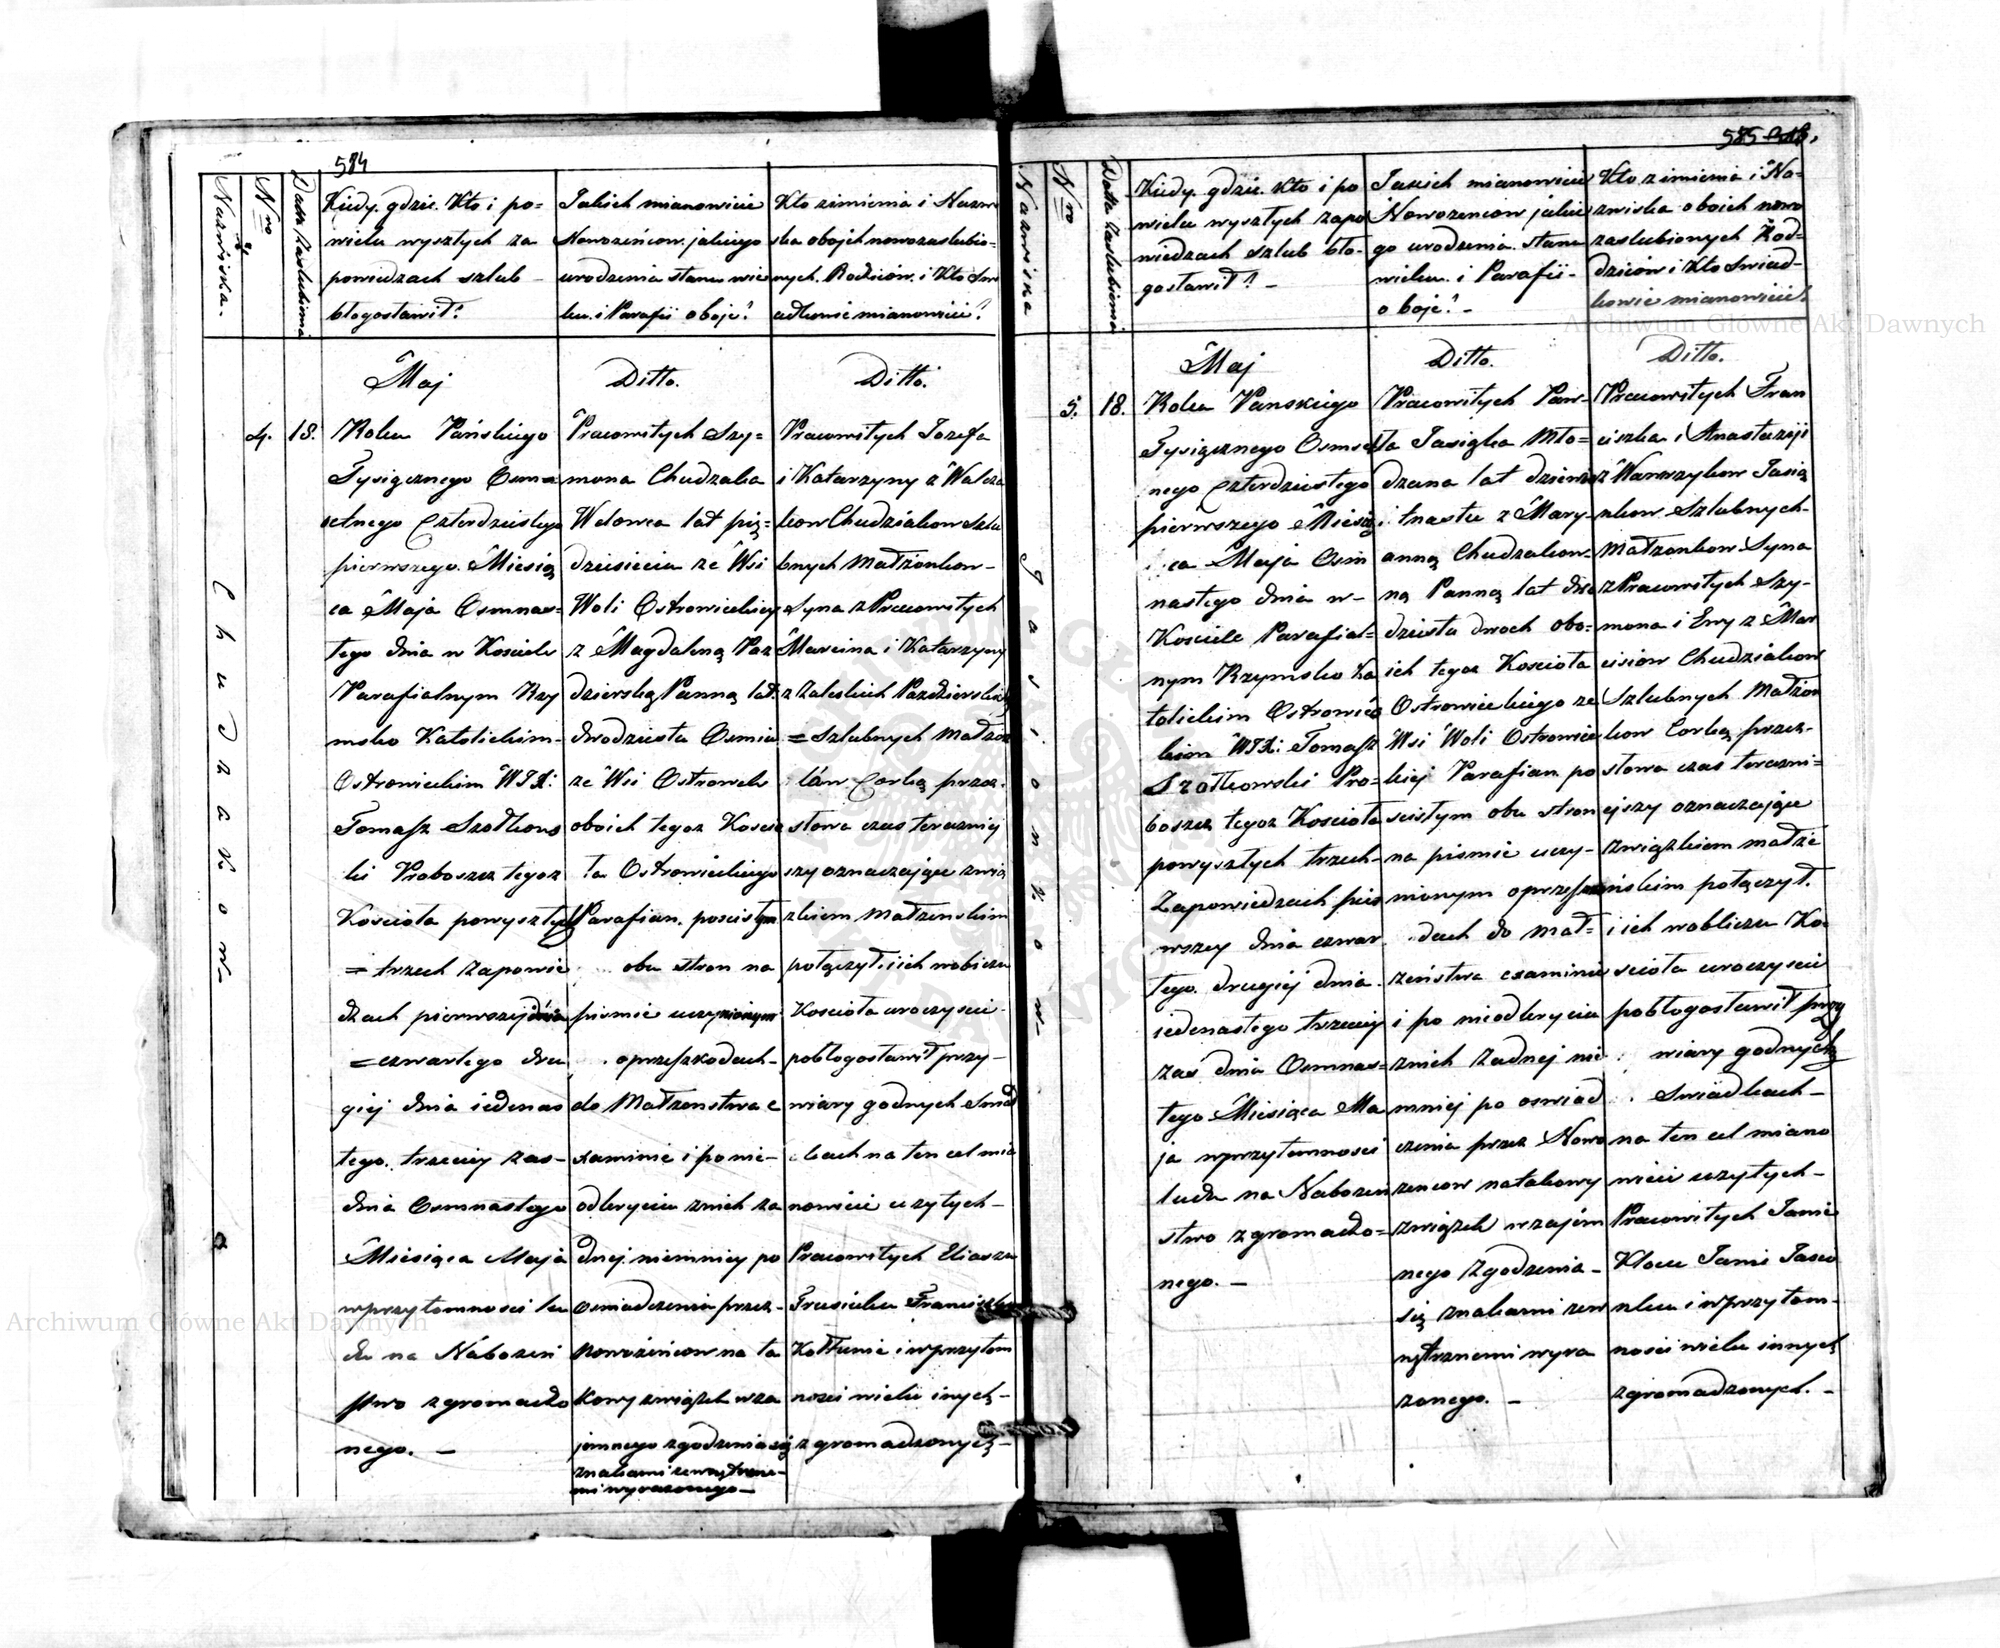 584
Nazwiska.
Nro
Data zaslubienia
Kiedy. gdzie. Kto i po=
wielu wyszłych za
powiedzach szlub
błogosławił?
Jakich mianowicie
Nowożeńcow. jakiego
urodzenia stanu wie
ku. i Parafii oboje?
Kto zimienia i Nazw
ska obojch nowozaslubio=
nych. Rodziców. i Kto Swi
adkowie mianowicie?
Maj
Ditto.
Ditto.
Chudzakow
4.
18.
Roku Pańskiego
Tysiącznego Osm=
setnego Czterdziestego
pierwszego. Miesią
ca Maja Osmnas=
tego dnia w Kosciele
Parafialnym Rzy
msko Katolickim
Ostrowieckim WJX:
Tomasz Szołkows
ki Proboszcz tegoz
Kosciola powyszłych
= trzech Zapowie
dzach pierwszy dnia
= czwartego dru
giej dnia iedenas
tego. trzeciey zas
dnia Osmnastego
Miesiąca Maja
wprzytomnosci lu
du na Nabożeń
stwo zgromadzo
nego. —
Pracowitych Szy=
mona Chudzaka
Wdowca lat pię=
dziesiecia ze Wsi
Woli Ostrowieckiey
z Magdaleną Paz
dzierską Panną lat
dwodziestu Osmiu
ze Wsi Ostrowek
oboich tegoz Koscio
ła Ostrowieckiego
Parafian. poscistym
obu stron na
pismie uczynionym
oprzeszkodach
do Małzenstwa e
xaminie i ponie=
odkryciu znich ża
dney. niemniey po
Oswiadczeniu przez
Nowożeńcow na ta
kowy związek wza
jemnego zgodzenia się
znakami zewnętrzne
mi wyrazonego —
Pracowitych Jozefa
i Katarzyny z Walcza
kow Chudziakow Szlu
bnych Małżonkow
Syna z Pracowitych
Marcina i Katarzyny
z Zaleskich Pazdzierskich
= Szlubnych Małżon
ków. Corką przez.
słowa czas terazniej
szy oznaczające zwią
zkiem Małzenskim
połączył. iich wobiczu
Kosciola uroczyscie
pobłogosławił przy
wiary godnych Swiad
kach na ten cel mia
nowicie uzytych
Pracowitych Eliasza
Trusiuka Franciszka
Kołtunie iwprzytom
nosci wielu inych
zgromadzonych —
585
Nazwiska
Nro
Data zaslubienia
Kiedy. gdzie. Kto i po
wielu wyszłych zapo
wiedzach Szlub bło=
gosławił? —
Jakich mianowicie
Nowozencow jakie
go urodzenia. stanu
wieku. i Parafii
oboje? —
Kto z imienia i Na=
zwiska oboich nowo
zaslubionych Rod=
dziców i Kto Swiad=
kowie mianowicie?
Maj
Ditto.
Ditto.
Jasionkow
5.
18.
Roku Panskiego
Tysiącznego Osmset
nego Czterdziestego
pierwszego Miesią
ca Maja Osm
nastego dnia w
Kosciele Parafial=
nym Rzymsko Ka
tolickim Ostrowiec
kim WJX: Tomasz
Szołkowski Pro=
boszcz tegoz Kosciola
powyszłych trzech
Zapowiedzach pier
wszey dnia czwar
tego. drugiej dnia
iedenastego trzeciey
zas dnia Osmnas=
tego Miesiąca Ma
ja wprzytomnosci
ludu na Nabożeń
stwo zgromadzo=
nego. —
Pracowitych Paw=
ła Jasiąka Mło=
dzana lat dziewię
i tnastu z Mary=
anną Chudzakow=
ną Panną lat dwo
dziestu dwoch obo=
ich tegoz Kosciola
Ostrowieckiego ze
Wsi Woli Ostrowiec
kiej Parafian. po
scistym obu stron
na pismie uczy=
nionym oprzeszko
dach do Mał=
zeństwa examinie
i po nieodkryciu
znich żadnej nie
mniej po oswiad
czeniu przez Nowo
zencow natakowy
związek wzajem
nego Zgodzenia
się znakami zew
nętrznemi wyra
zonego. —
Pracowitych Fran
ciszka i Anastazyi
z Wawrzykow Jasią
nkow Szlubnych
Małzonkow. Syna
z Pracowitych Szy=
mona i Ewy z Mar
cisiow Chudziakow
Szlubnych Małzon
kow Corką przez
słowa czas terazni=
ejszy oznaczające
związkiem małże
ńskim połączył.
i ich wobliczu Ko=
sciola uroczyscie
pobłogosławił przy
wiary godnych
Swiadkach
na ten cel miano
wicie uzytych
Pracowitych Janie
Kłocu Janie Jasio
nku i wprzytom=
nosci wielu innych
zgromadzonych. —
Archiwum Główne Akt Dawnych
Archiwum Główne Akt Dawnych